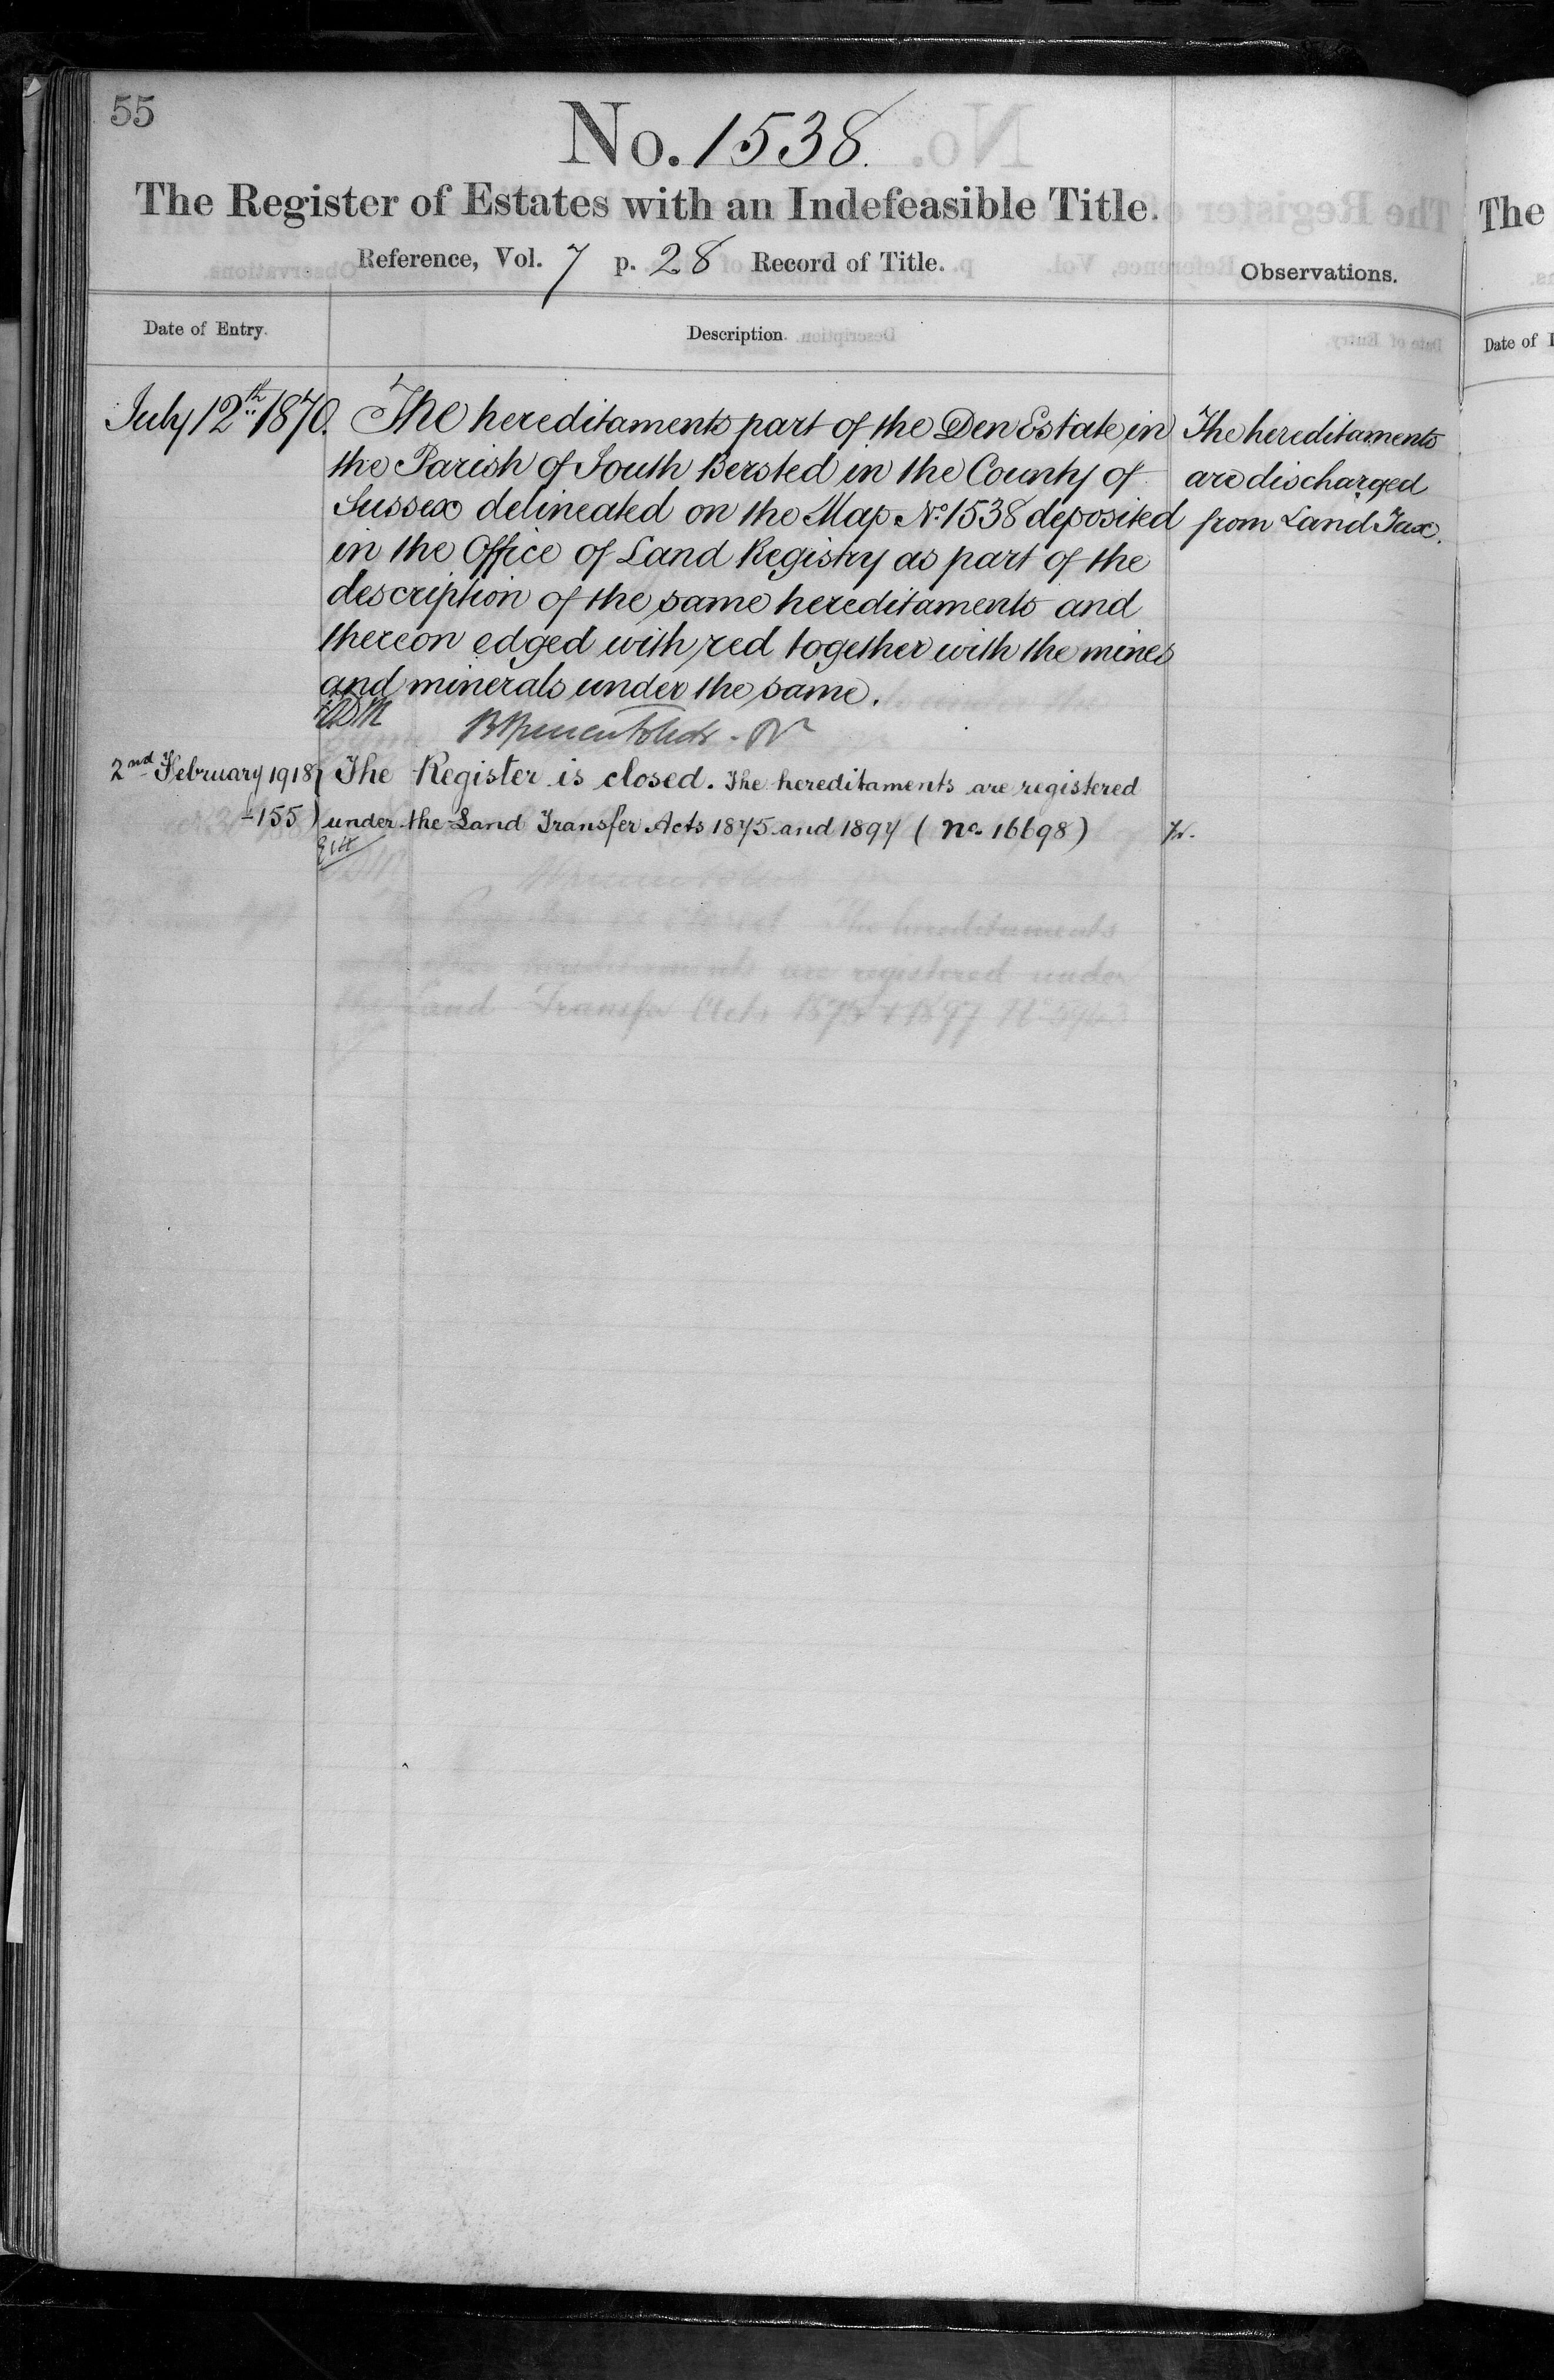 55
No. 1538.
The Register of Estates with an Indefeasible Title.
Reference, Vol. 7 p. 28 Record of Title.
Observations.
Date of Entry.
Description.
July 12th 1870.
The hereditaments part of the Den Estate in
the Parish of South Bersted in the County of
Sussex delineated on the Map No. 1538 deposited
in the Office of Land Registry as part of the
description of the same hereditaments and
thereon edged with red together with the mines
and minerals under the same.
The hereditaments
are discharged
from Land Tax.
2nd February 1918
-155
The Register is closed. The hereditaments are registered
under the Land Transfer Acts 1875 and 1897 (No. 16698)
The
Date of